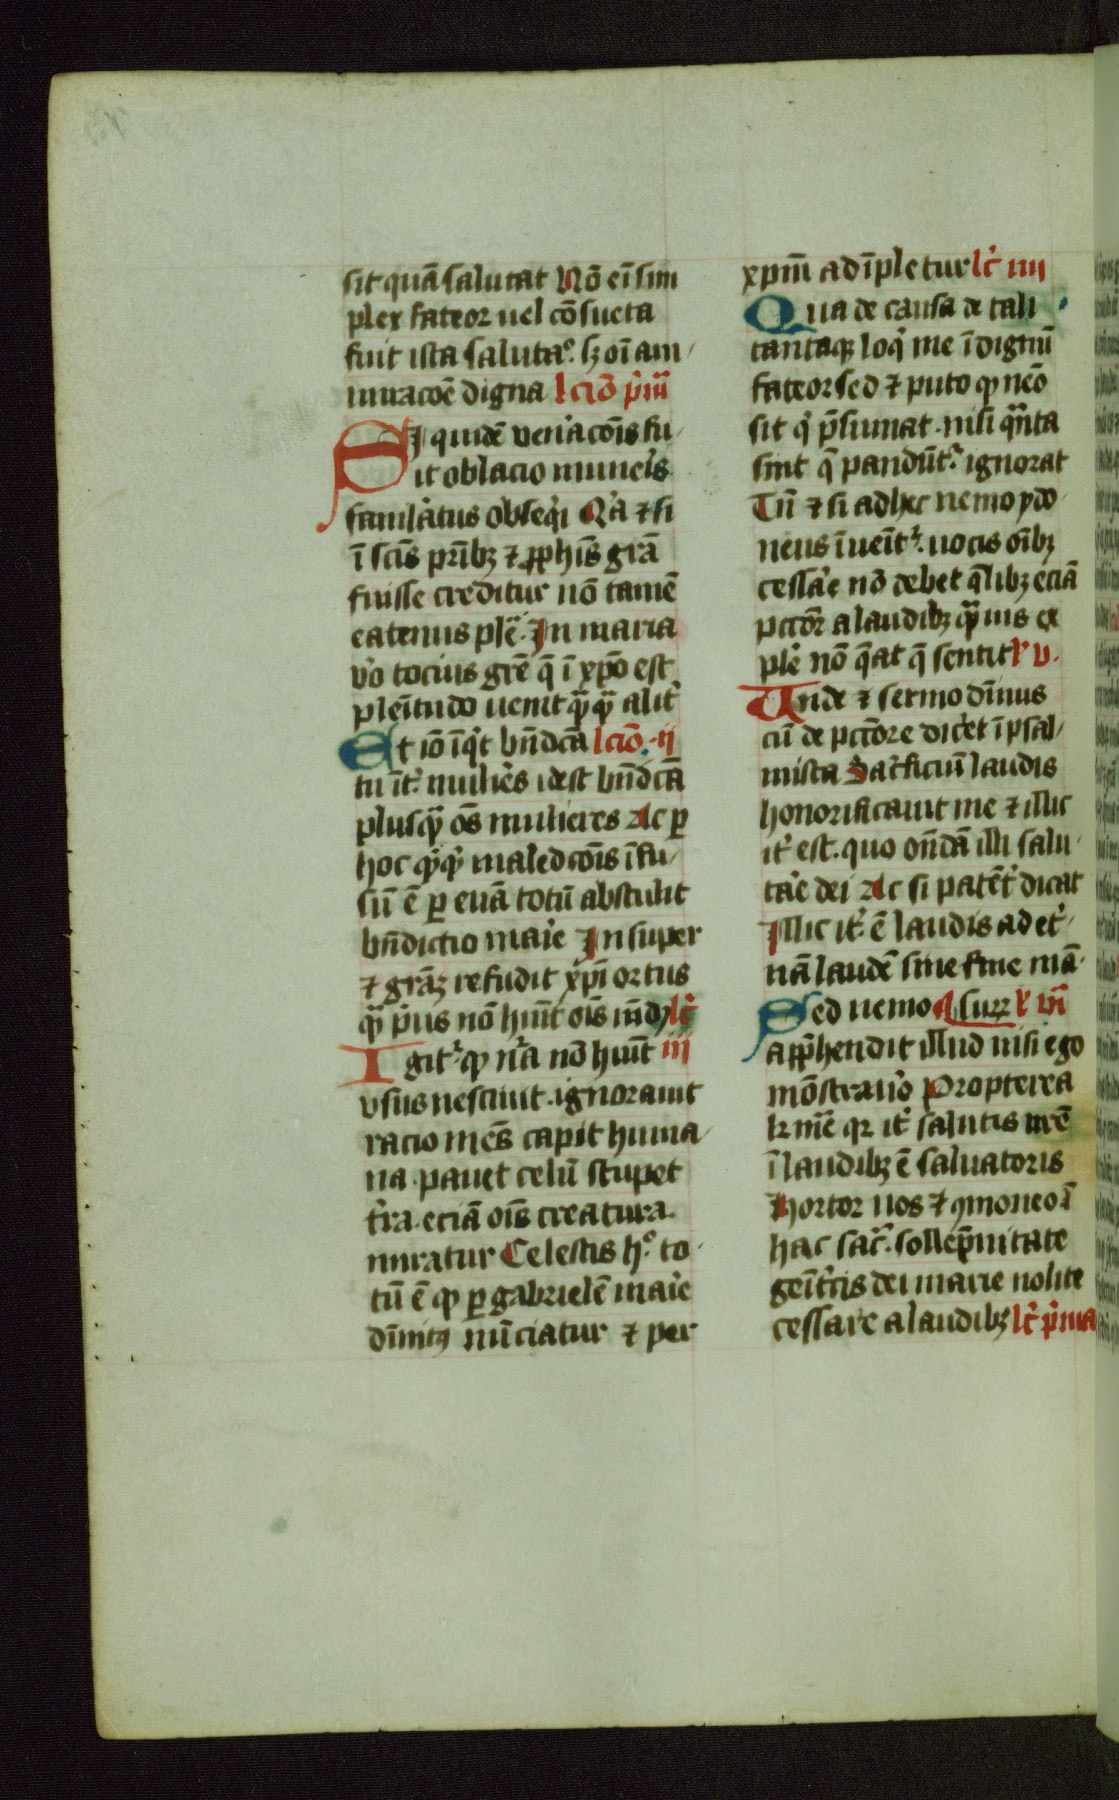 sit quā salutat Nō eī sim
plex fateor uel cōsueta
fuit ista salutaᵒ. sꝫ oī am
miracōē digna lcīō p̄mͣ
Si quidē uenʼacōīs fu
it oblacio munerʼs
famulʼatus obseqʼi Qʼa ⁊ si
ī scīs prībꝫ ⁊ ꝓphīs grā
fuisse creditur nō tamē
eatenus plē. In maria
vʼo tocius grē q̄ ī xp̄o est
plēitudo uenit qͣ̄qͣ̄ alitʼ
Et iō īqʼt bn̄dcā lcīō. ii
tu īt̾ muliʼes idest bn̄dcā
plusqͣ̄ ōs mulieres Ac ꝑ
hoc qʼqʼ maledcōīs īfu
sū ē ꝑ euā totū abstulit
bn̄dictio maʼie In super
⁊ grāꝫ refudit xp̄i ortus
qͣ̄ pʼus nō hūit oīs mūdꝰ lcʼ
Igit̾ ꝙ nʼa nō hūit iii
vsus nesciuit. ignorauit
racio mēs capit huma
na. pauet celū stupet
tʼra. eciā oīs creatura.
miratur Celestis hᵒ. to
tū ē ꝙ ꝑ gabrielē maʼie
dīnitꝰ nūciatur ⁊ per
xpm̄ adīpletur lcʼ iiii
Qua de causa de tali
tantaqꝫ loqʼ me īdignū
fateor sed ⁊ puto ꝙ nēo
sit qʼ p̄sumat. nisi qͣ̄nta
sint q̄ pandūt̾ ignorat
Tn̄ ⁊ si adhec nemo ydo
neus īueīt̾. uocis oībꝫ
cessaʼe nō debet q̄libꝫ eciā
pctōr a laudibꝫ qͣ̄uis ex
plēʼ nō q̄at q̄ sentit lʼ v.
Unde ⁊ sermo dīnus
cū de pctōre dicʼet ī psal
mista Sacʼficiū laudis
honorificauit me ⁊ illic
itʼ est. quo ōn̄dā illi salu
taʼe dei Ac si patēt̾ dicat
Illic itʼ ē laudis ad etʼ
nā laudē sine fine mā
Sed nemo ¶ surꝝ lʼ vi
apꝓhendit illud nisi ego
mōstrauʼo Propterea
kͬmē qꝛ itʼ salutis nrē
ī laudibꝫ ē saluatoris
Hortor uos ⁊ ꝯmoneo ī
hac sacʼ. sollēp̄nitate
geītʼcis dei marie nolite
cessare a laudibꝫ lcʼ p̄ma